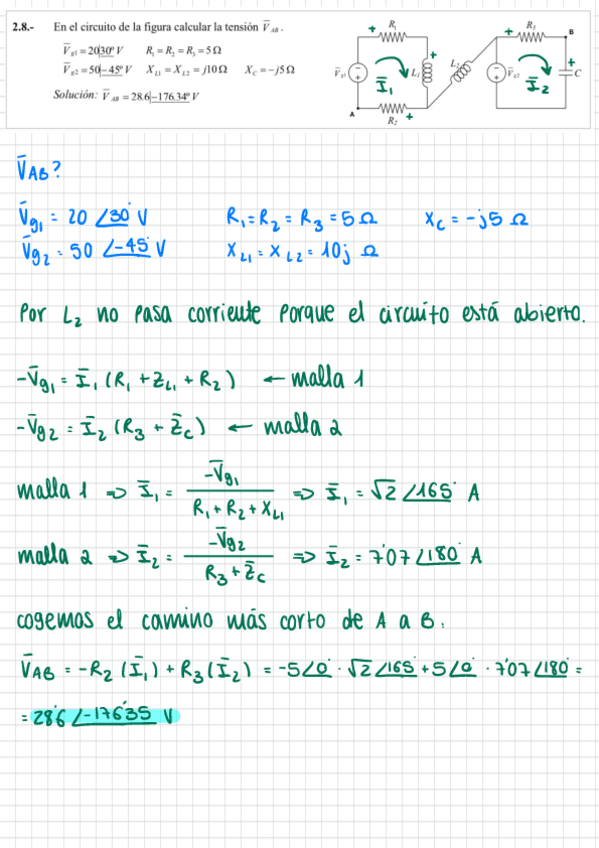 2.8.- En el circuito de la figura calcular la tensión V̅_AB.
V̅_g1 = 20|30º V R₁ = R₂ = R₃ = 5 Ω
V̅_g2 = 50|−45º V X_L1 = X_L2 = j10 Ω X_C = −j5 Ω
Solución: V̅_AB = 28.6|−176.34º V
+ R₁
V̅_g1 + − I̅₁ L₁ + L₂
A R₂ +
+ R₃ B
+ − V̅_g2 I̅₂ + C
V̅_AB?
V̅g₁ = 20 ∠30° V R₁ = R₂ = R₃ = 5 Ω X_C = −j5 Ω
V̅g₂ = 50 ∠−45° V X_L1 = X_L2 = 10j Ω
Por L₂ no pasa corriente porque el circuito está abierto.
−V̅g₁ = I̅₁ (R₁ + Z_L1 + R₂) ← malla 1
−V̅g₂ = I̅₂ (R₃ + Z̅_C) ← malla 2
malla 1 => I̅₁ = −V̅g₁ / (R₁ + R₂ + X_L1) => I̅₁ = √2 ∠165° A
malla 2 => I̅₂ = −V̅g₂ / (R₃ + Z̅_C) => I̅₂ = 7'07 ∠180° A
cogemos el camino más corto de A a B.
V̅_AB = −R₂ (I̅₁) + R₃ (I̅₂) = −5∠0° · √2 ∠165° + 5∠0° · 7'07 ∠180° =
= 28'6 ∠−176'35° V